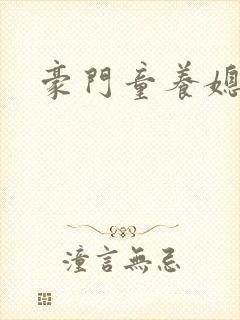 豪門童養媳
潼言無忌